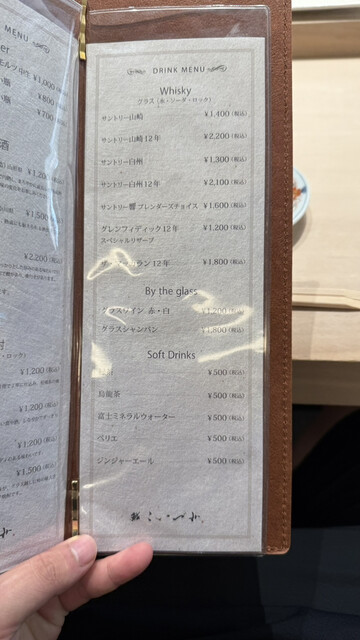 MENU
¥1,000
¥800
¥700
酒
¥1,200
¥1,500
¥2,200
¥1,200
¥1,200
¥1,200
¥1,500
DRINK MENU
Whisky
グラス (水・ソーダ・ロック)
サントリー山崎 ¥1,400(税込)
サントリー山崎12年 ¥2,200(税込)
サントリー白州 ¥1,300(税込)
サントリー白州12年 ¥2,100(税込)
サントリー響 ブレンダーズチョイス ¥1,600(税込)
グレンフィディック12年 ¥1,200(税込)
スペシャルリザーブ
ラン12年 ¥1,800(税込)
By the glass
グラスワイン 赤・白 (税込)
グラスシャンパン ¥1,800(税込)
Soft Drinks
¥500(税込)
烏龍茶 ¥500(税込)
富士ミネラルウォーター ¥500(税込)
ペリエ ¥500(税込)
ジンジャーエール ¥500(税込)